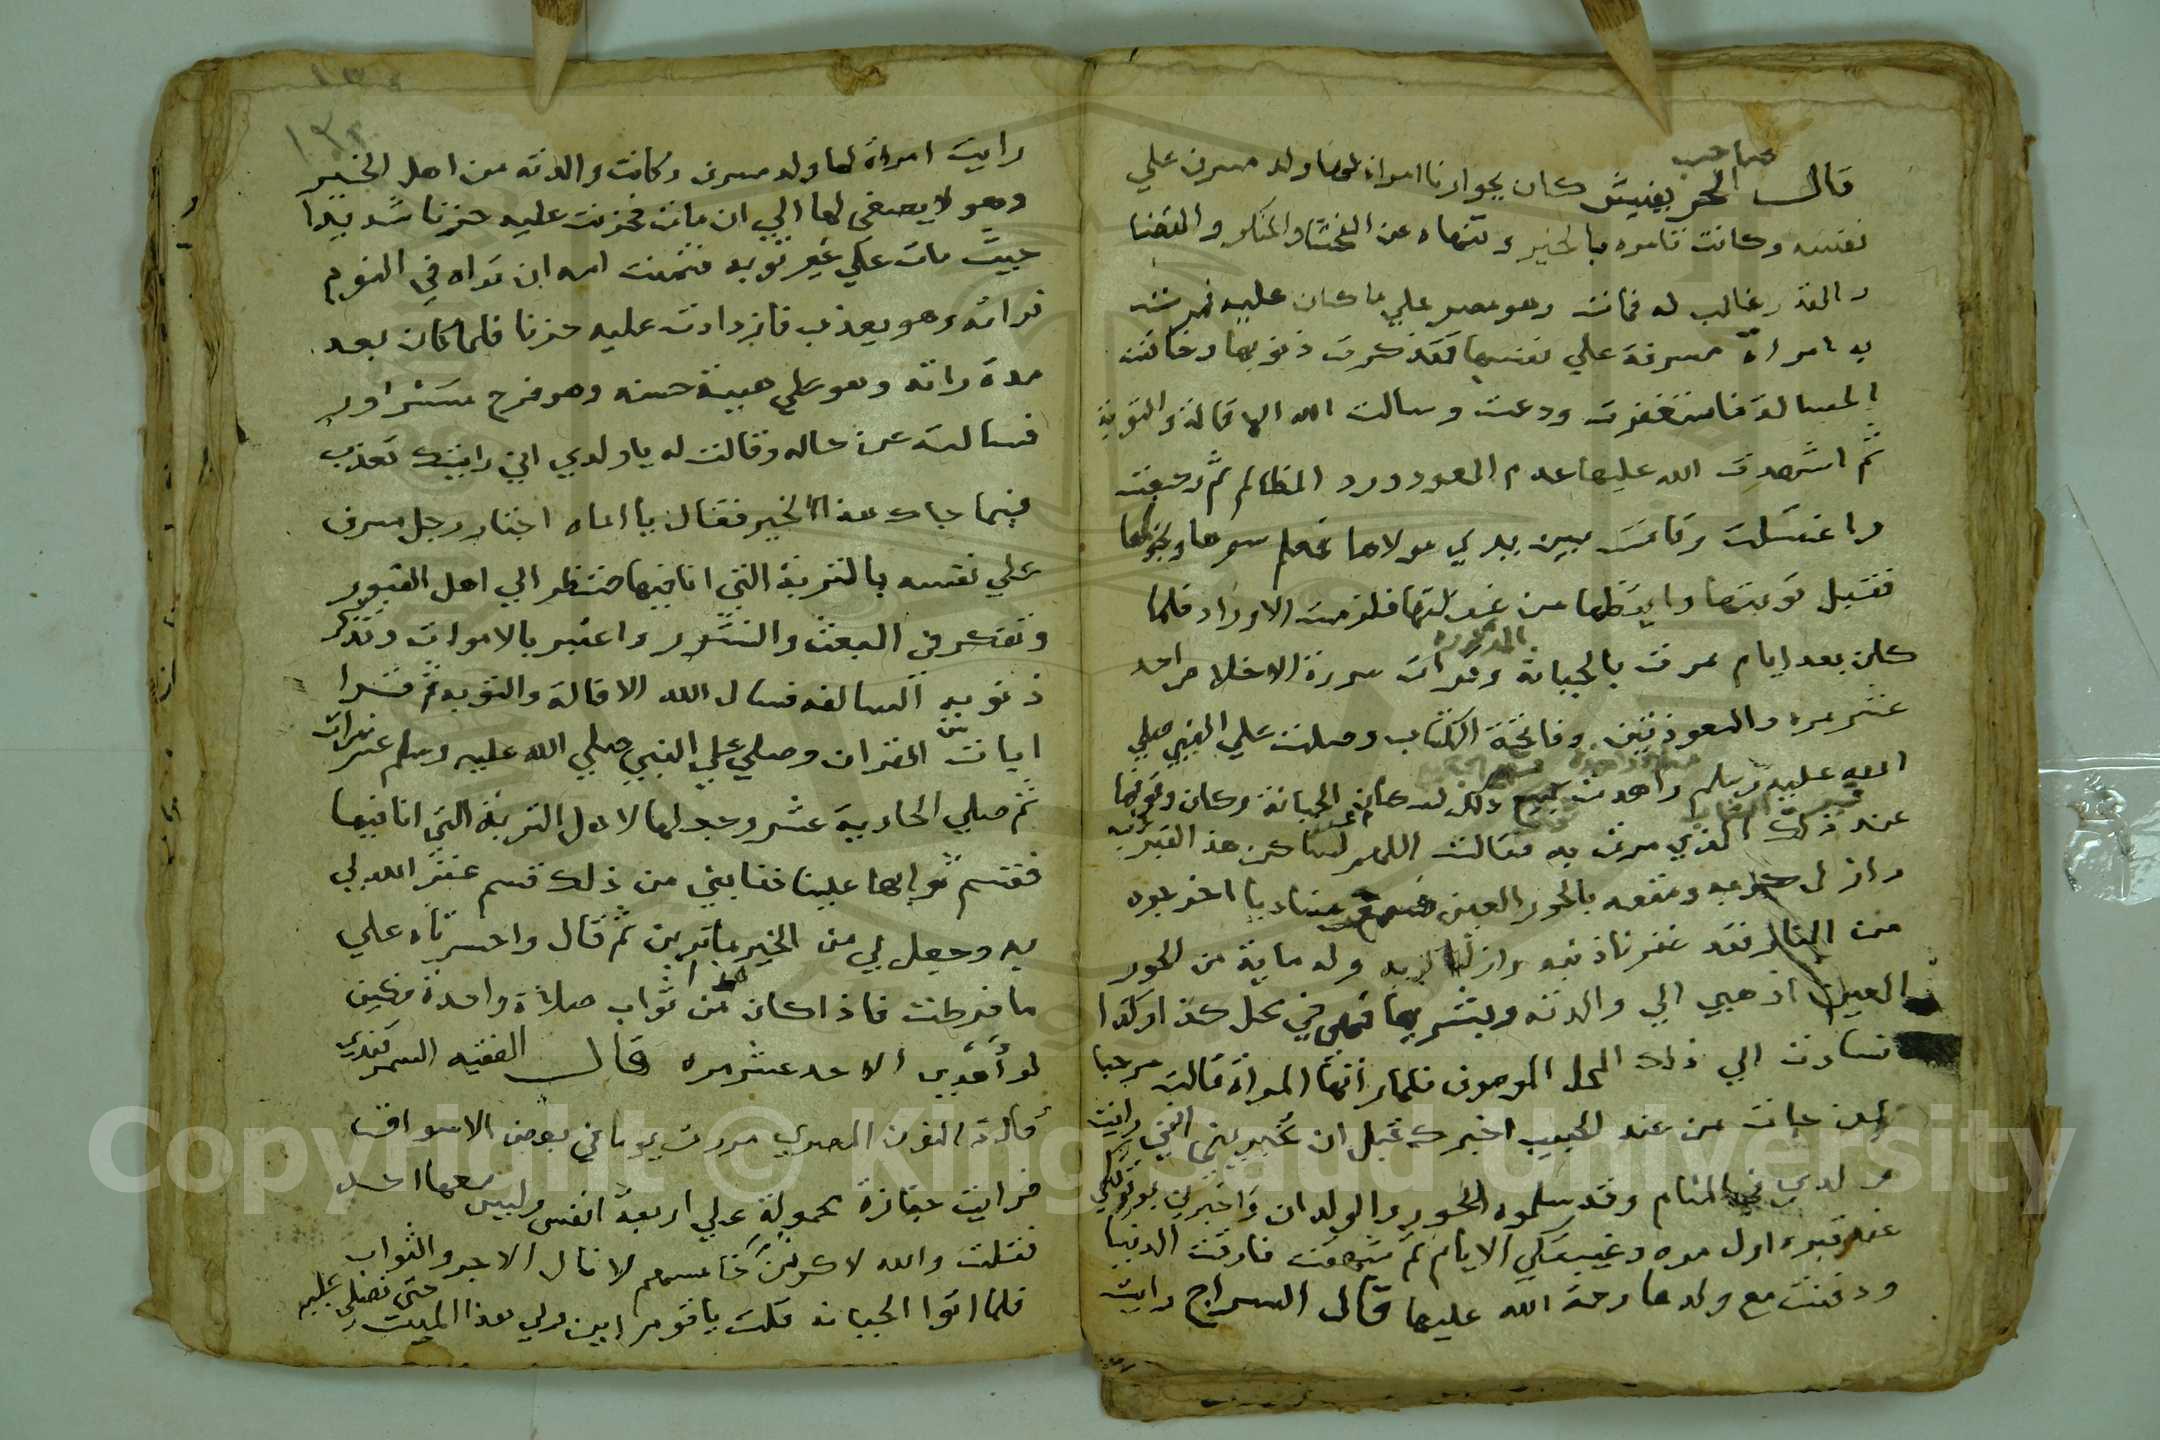 صاحب
قال الحريفيش كان بجوارنا امراة لها ولد مسرف علي
نفسه وكانت تامره بالخير وتنهاه عن الفحشا والمنكر والقضا
والقدر غالب له فمات وهو مصر علي ما كان عليه فمرت
به امراة مسرفة علي نفسها فتذكرت ذنوبها وخافت
المسالة فاستغفرت ودعت وسالت الله الاقالة والتوبة
ثم اشهدت الله عليها عدم العود ورد المظالم ثم رجعت
واغتسلت وقامت بين يدي مولاها فعلم سرها ونجواها
فقبل توبتها وايقظها من غفلتها فلزمت الاوراد فلما
كان بعد ايام مرت بالجبانة المذكورة وقرات سورة الاخلاص احد
عشر مره والمعوذتين وفاتحة الكتاب وصلت علي النبي صلي
الله عليه وسلم واهدت ذلك لسكان الجبانة وكان وقوفها
عند ذلك الذي مرت به فقالت اللهم اغفر لساكن هذا القبر ذنبه
وازل كربه ومتعه بالحور العين مناديا اخرجوه
من النار فقد غفرنا ذنبه وازلنا كربه وله ماية من الحور
العين اذهبي الي والدته وبشريها فهي في محل كذا وكذا
فسارت الي ذلك المحل الموصوف فلما راتها المراة قالت مرحبا
بمن جات من عند الحبيب اخبرك قبل ان تخبريني انني رايت
ولدي في المنام وقد سلموه الحور والولدان واخبرني بوقوفكي
عند قبره اول مره وغيبتكي الايام ثم شهقت فارقت الدنيا
ودفنت مع ولدها رحمة الله عليها قال السراج رايت
١٣٢
رايت امراة لها ولد مسرف وكانت والدته من اهل الخير
وهو لا يصغي لها الي ان مات فحزنت عليه حزنا شديدا
حيث مات علي غير توبه فتمنت امه ان تراه في النوم
فراته وهو يعذب فازدادت عليه حزنا فلما كان بعد
مدة راته وهو علي هيئة حسنه وهو فرح مسرور
فسالت عن حاله وقالت له يا ولدي اني رايتك تعذب
فبما جاك هذا الخير فقال يا اماه اجتاز رجل مسرف
علي نفسه بالتربة التي انا فيها فنظر الي اهل القبور
وتفكر في البعث والنشور واعتبر بالاموات وتذكر
ذنوبه السالفه فسال الله الاقالة والتوبه ثم قرا
ايات من القران وصلي علي النبي صلي الله عليه وسلم عشر مرات
ثم صلي الحادية عشر وجعلها لاهل التربة التي انا فيها
فقسم ثوابها علينا فنابني من ذلك قسم غفر الله لي
به وجعل لي من الخير ما ترين ثم قال واحسرتاه علي
ما فرطت فاذا كان هذا من ثواب صلاة واحدة فكيف
لو اهدي الاحد عشر مره قال الفقيه السمرقندي
قال ذا النون المصري مررت يوما في بعض الاسواق
فرايت جنازة محمولة علي اربعة انفس وليس معها احد
فقلت والله لاكونن خامسهم لانال الاجر والثواب
فلما اتوا الجبانه قلت يا قوم اين ولي هذا الميت حتي نصلي عليه
Copyright © King Saud University